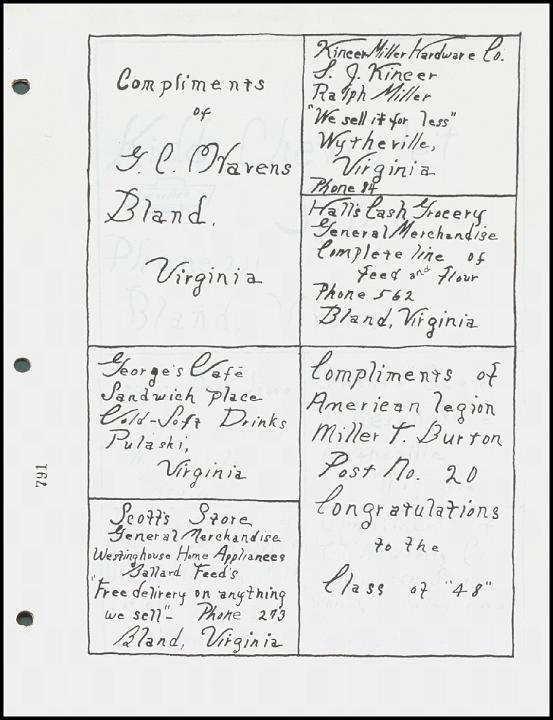 Compliments
of
G. C. Havens
Bland,
Virginia
Kincer Miller Hardware Co.
S. J. Kincer
Ralph Miller
"We sell it for less"
Wytheville,
Virginia
Phone 84
Hall's Cash Grocery
General Merchandise
Complete line of
Feed and Flour
Phone 562
Bland, Virginia
George's Café
Sandwich place
Cold-Soft Drinks
Pulaski,
Virginia
Scott's Store
General Merchandise
Westinghouse Home Appliances
Ballard Feed's
"Free delivery on anything
we sell"- Phone 273
Bland, Virginia
Compliments of
American legion
Miller T. Burton
Post No. 20
Congratulations
to the
Class of "48"
791